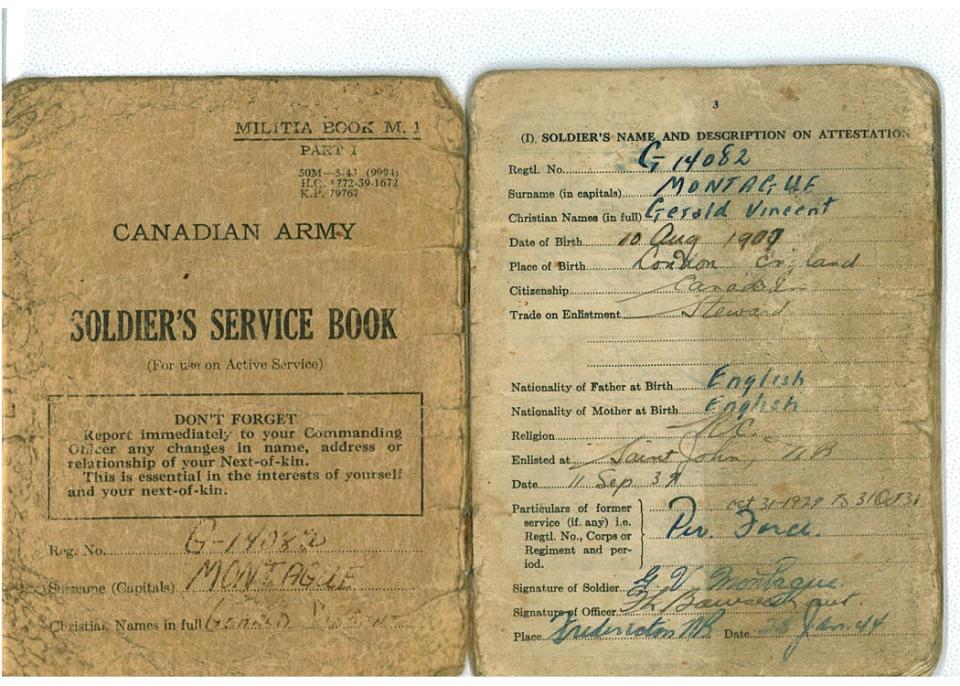 MILITIA BOOK M. 1
PART I
50M—5-43 (9994)
H.Q. 1772-39-1672
K.P. 79767
CANADIAN ARMY
SOLDIER'S SERVICE BOOK
(For use on Active Service)
DON'T FORGET
Report immediately to your Commanding
Officer any changes in name, address or
relationship of your Next-of-kin.
This is essential in the interests of yourself
and your next-of-kin.
Reg. No. G-14082
Surname (Capitals) MONTAGUE
Christian Names in full Gerald
3
(I) SOLDIER'S NAME AND DESCRIPTION ON ATTESTATION
Regtl. No. G 14082
Surname (in capitals) MONTAGUE
Christian Names (in full) Gerald Vincent
Date of Birth 10 Aug
Place of Birth London England
Citizenship Canadian
Trade on Enlistment Steward
Nationality of Father at Birth English
Nationality of Mother at Birth English
Religion R.C.
Enlisted at Saint John, NB
Date 11 Sep 39
Particulars of former
service (if any) i.e.
Regtl. No., Corps or
Regiment and per-
iod.
Oct 31-1929 To 31 Oct 31
Per. Force.
Signature of Soldier G V Montague.
Signature of Officer
Place Fredericton NB Date Jan. 44